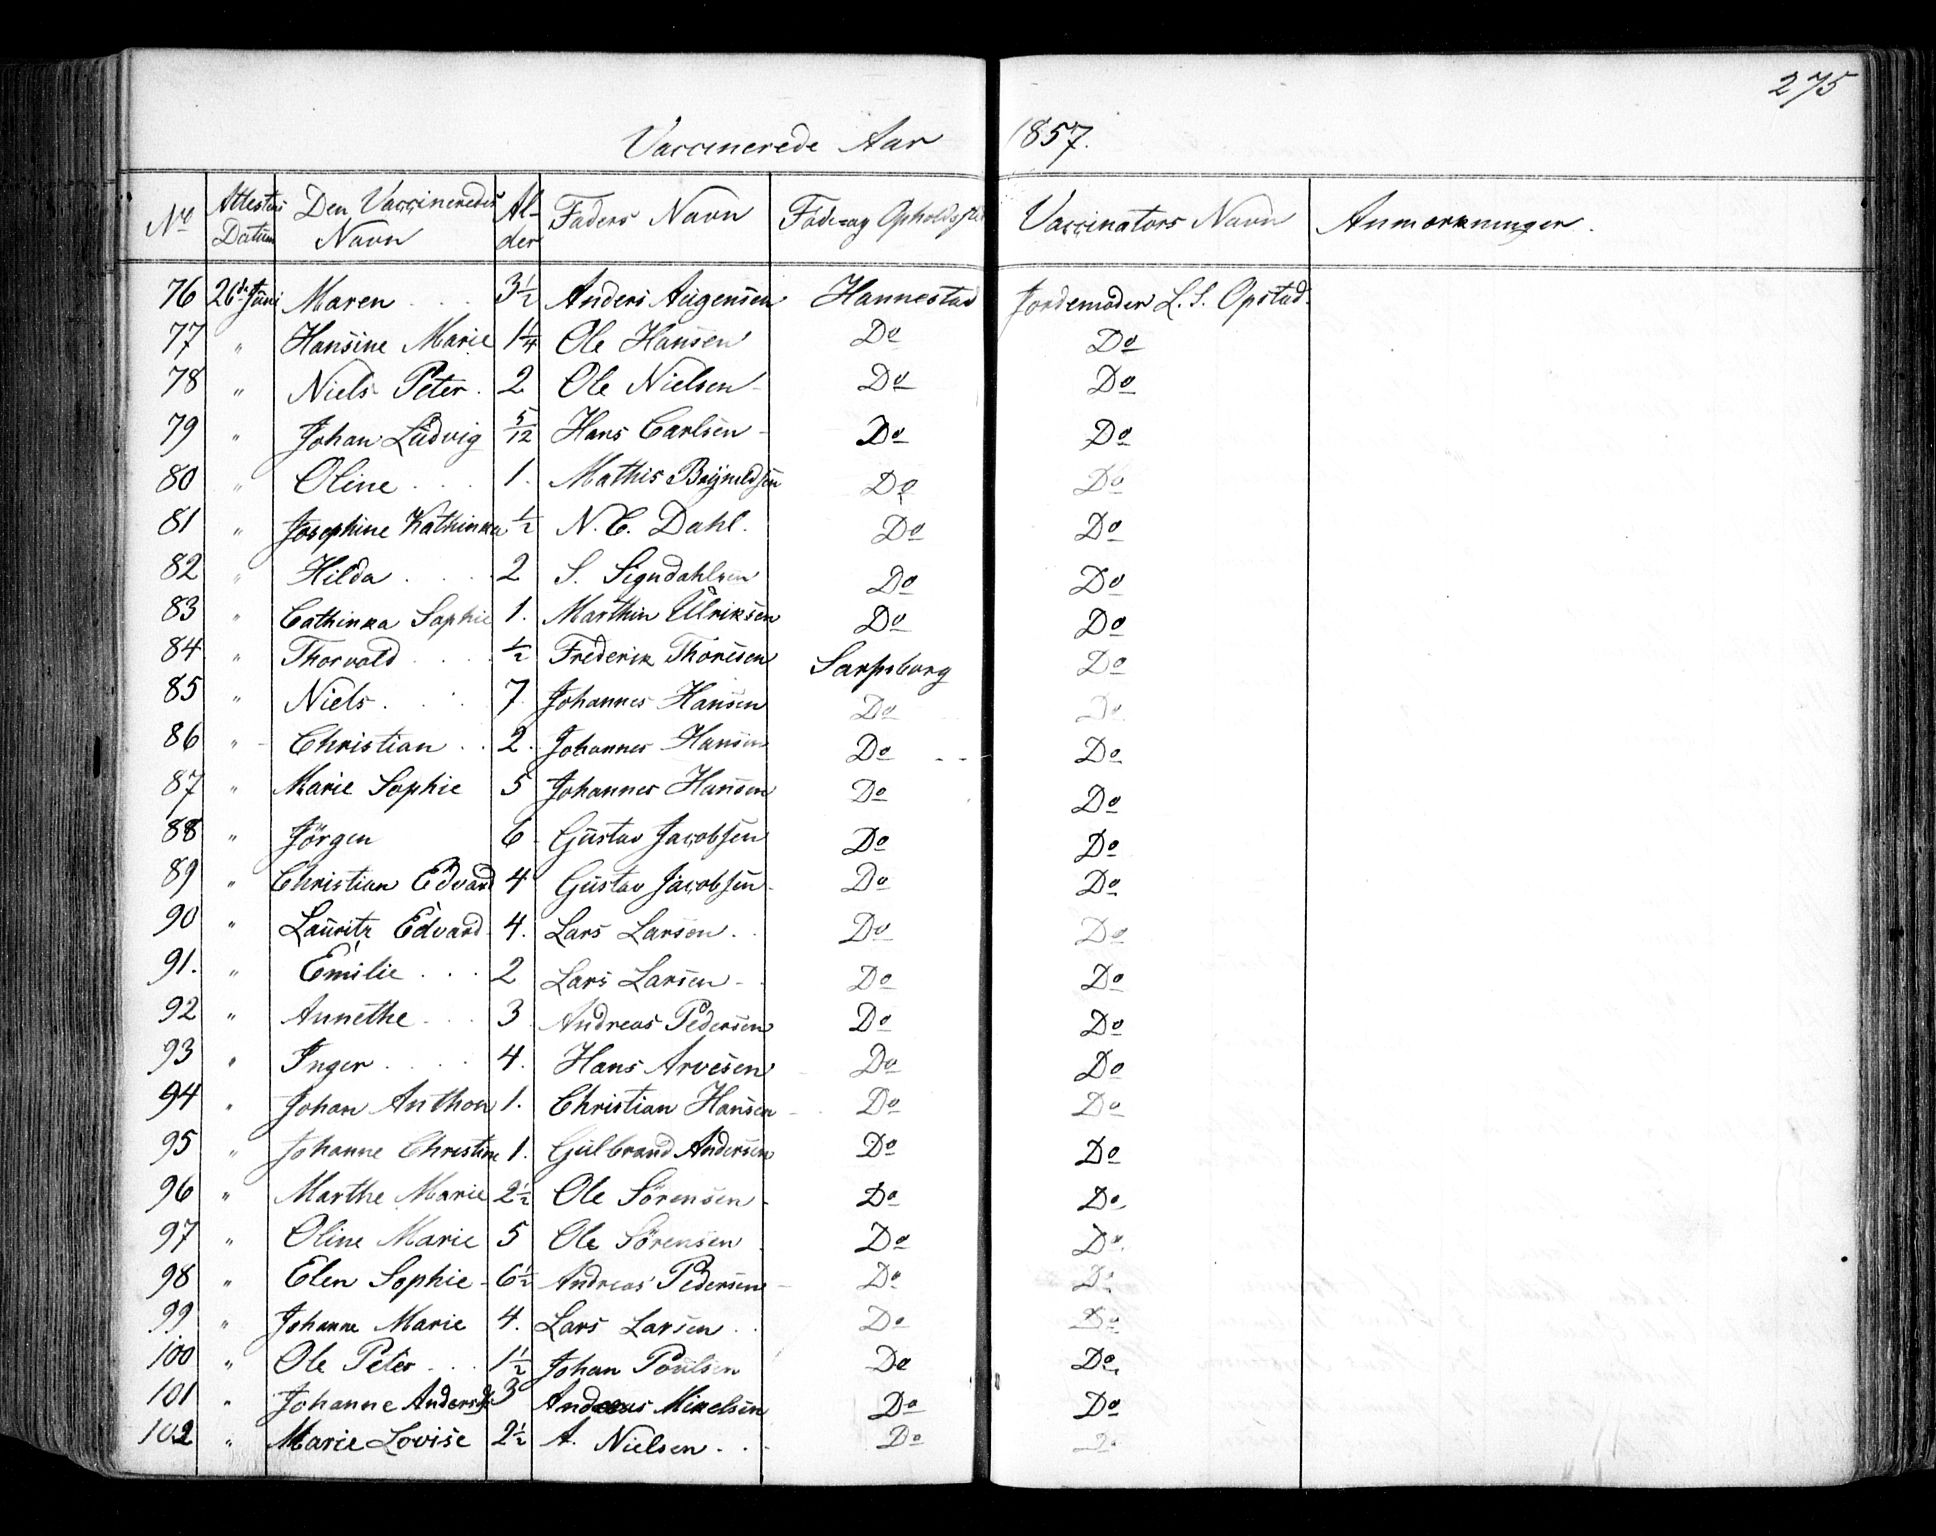 275
Vaccinerede Aar 1857.
No Attestens Datum Den Vaccineredes Navn Alder Faders Navn Føde- og Opholdssted Vaccinators Navn Anmærkninger.
76 26de Juni Maren 3½ Anders Augensen Hannestad Jordemoder L. S. Opstad.
77 " Hansine Marie 1¼ Ole Hansen Do Do
78 " Niels Peter. 2 Ole Nielsen Do Do
79 " Johan Ludvig 5/12 Hans Carlsen Do Do
80 " Oline 1. Mathis Do Do
81 " Josephine Kathinka ½ N. C. Dahl. Do Do
82 " Hilda 2 S. Sigudahlsen Do Do
83 " Cathinka Sophie 1. Marthin Ulriksen Do Do
84 " Thorvald ½ Frederik Thoresen Sarpsborg Do
85 " Niels 7 Johannes Hansen Do Do
86 " Christian 2. Johannes Hansen Do Do
87 " Marie Sophie 5 Johannes Hansen Do Do
88 " Jörgen 6 Gustav Jacobsen Do Do
89 " Christian Edvard 4 Gustav Jacobsen Do Do
90 " Lauritz Edvard 4. Lars Larsen Do Do
91. " Emilie 2 Lars Larsen Do Do
92 " Annethe 3 Andreas Pedersen Do Do
93 " Inger 4. Hans Arvesen Do Do
94 " Johan Anthon 1. Christian Hansen Do Do
95 " Johanne Christine 1. Gulbrand Andersen Do Do
96 " Marthe Marie 2½ Ole Sörensen Do Do
97 " Oline Marie 5 Ole Sörensen Do Do
98 " Elen Sophie 6½ Andreas Pedersen Do Do
99 " Johanne Marie 4. Lars Larsen Do Do
100 " Ole Peter 1½ Johan Poulsen Do Do
101 " Johanne 3 Andreas Mikelsen Do Do
102 " Marie Lovise 2½ A. Nielsen Do Do